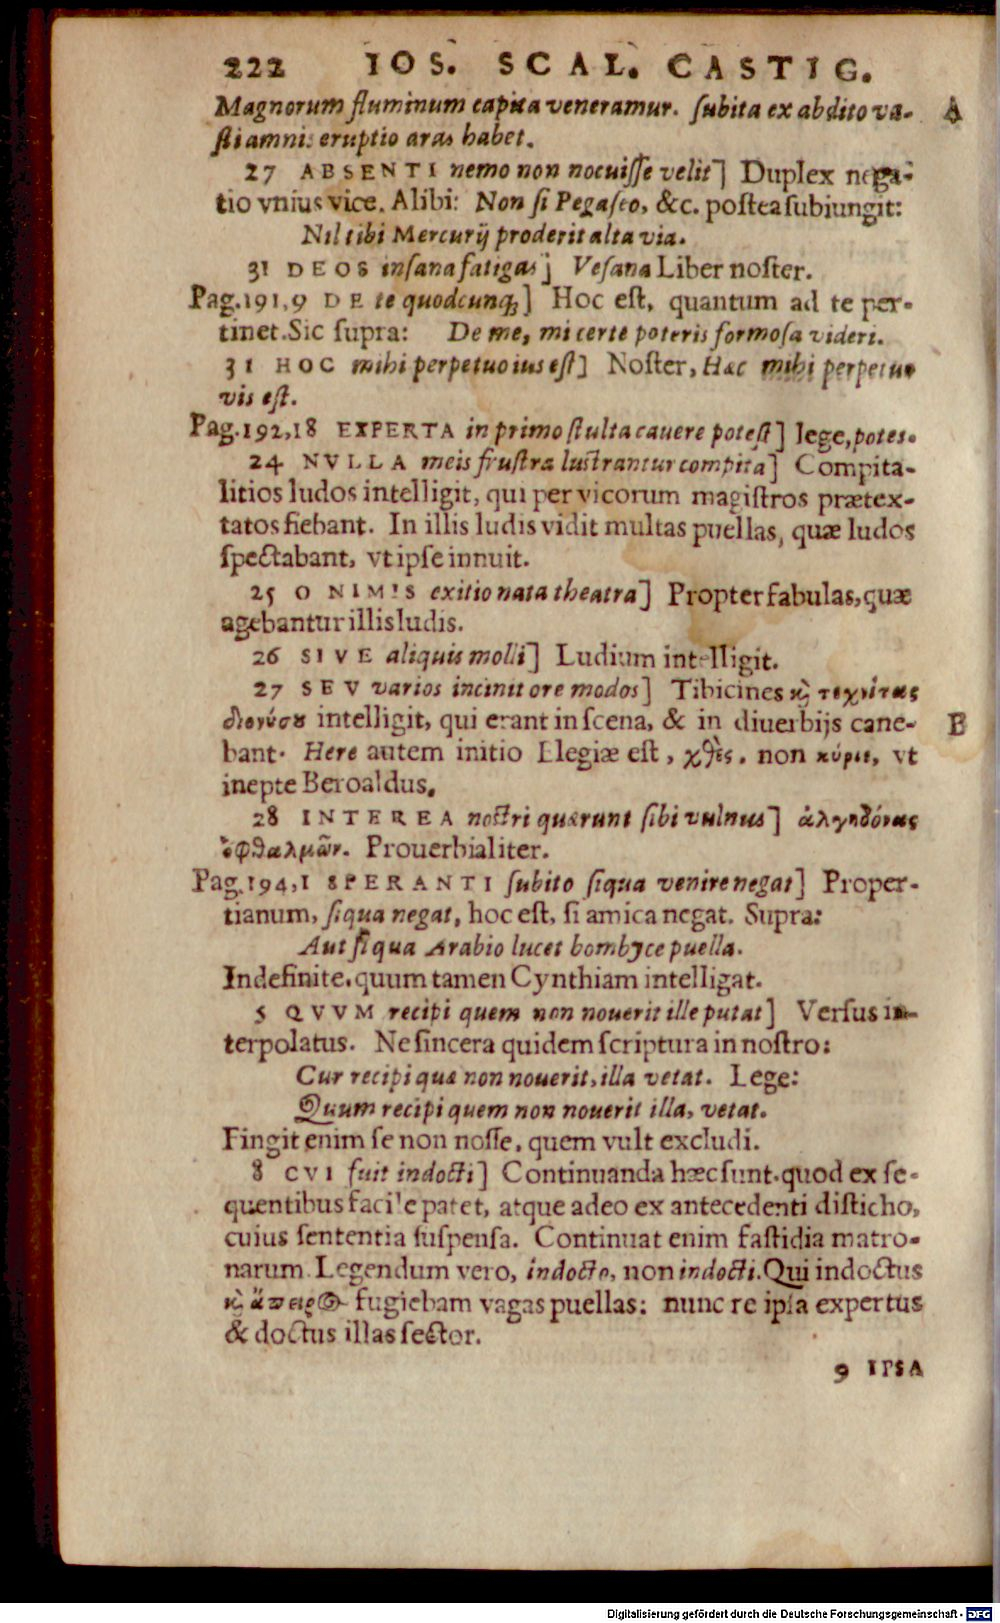 222 IOS. SCAL. CASTIG.
Magnorum fluminum capita veneramur. ſubita ex abdito va- A
ſti amnis eruptio aras habet.
27 ABSENTI nemo non nocuiſſe velit] Duplex nega-
tio vnius vice. Alibi: Non ſi Pegaſeo, &c. poſtea ſubiungit:
Nil tibi Mercurij proderit alta via.
31 DEOS inſana fatigas] Veſana Liber noſter.
Pag.191,9 DE te quodcunq́;] Hoc eſt, quantum ad te per-
tinet. Sic ſupra: De me, mi certe poteris formoſa videri.
31 HOC mihi perpetuo ius eſt] Noſter, Hac mihi perpetuo
vis eſt.
Pag.192,18 EXPERTA in primo ſtulta cauere poteſt] lege, potes.
24 NVLLA meis fruſtra luſtrantur compita] Compita-
litios ludos intelligit, qui per vicorum magiſtros prætex-
tatos fiebant. In illis ludis vidit multas puellas, quæ ludos
ſpectabant, vt ipſe innuit.
25 O NIMIS exitio nata theatra] Propter fabulas, quæ
agebantur illis ludis.
26 SIVE aliquis molli] Ludium intelligit.
27 SEV varios incinit ore modos] Tibicines ϗ̀ τεχνίτας
διονύσου intelligit, qui erant in ſcena, & in diuerbijs cane- B
bant. Here autem initio Elegiæ eſt, χθὲς. non κύριε, vt
inepte Beroaldus.
28 INTEREA noſtri quærunt ſibi vulnus] ἀλγηδόνας
ὀφθαλμῶν. Prouerbialiter.
Pag.194,1 SPERANTI ſubito ſiqua venire negat] Proper-
tianum, ſiqua negat, hoc eſt, ſi amica negat. Supra:
Aut ſiqua Arabio lucet bombyce puella.
Indefinite. quum tamen Cynthiam intelligat.
5 QVVM recipi quem non nouerit ille putat] Verſus in-
terpolatus. Ne ſincera quidem ſcriptura in noſtro:
Cur recipi quæ non nouerit, illa vetat. Lege:
Quum recipi quem non nouerit illa, vetat.
Fingit enim ſe non noſſe, quem vult excludi.
8 CVI fuit indocti] Continuanda hæc ſunt. quod ex ſe-
quentibus facile patet, atque adeo ex antecedenti diſticho,
cuius ſententia ſuſpenſa. Continuat enim faſtidia matro-
narum. Legendum vero, indocto, non indocti. Qui indoctus
ϗ̀ ἄπειρος fugiebam vagas puellas: nunc re ipſa expertus
& doctus illas ſector.
9 IPSA
Digitalisierung gefördert durch die Deutsche Forschungsgemeinschaft - DFG